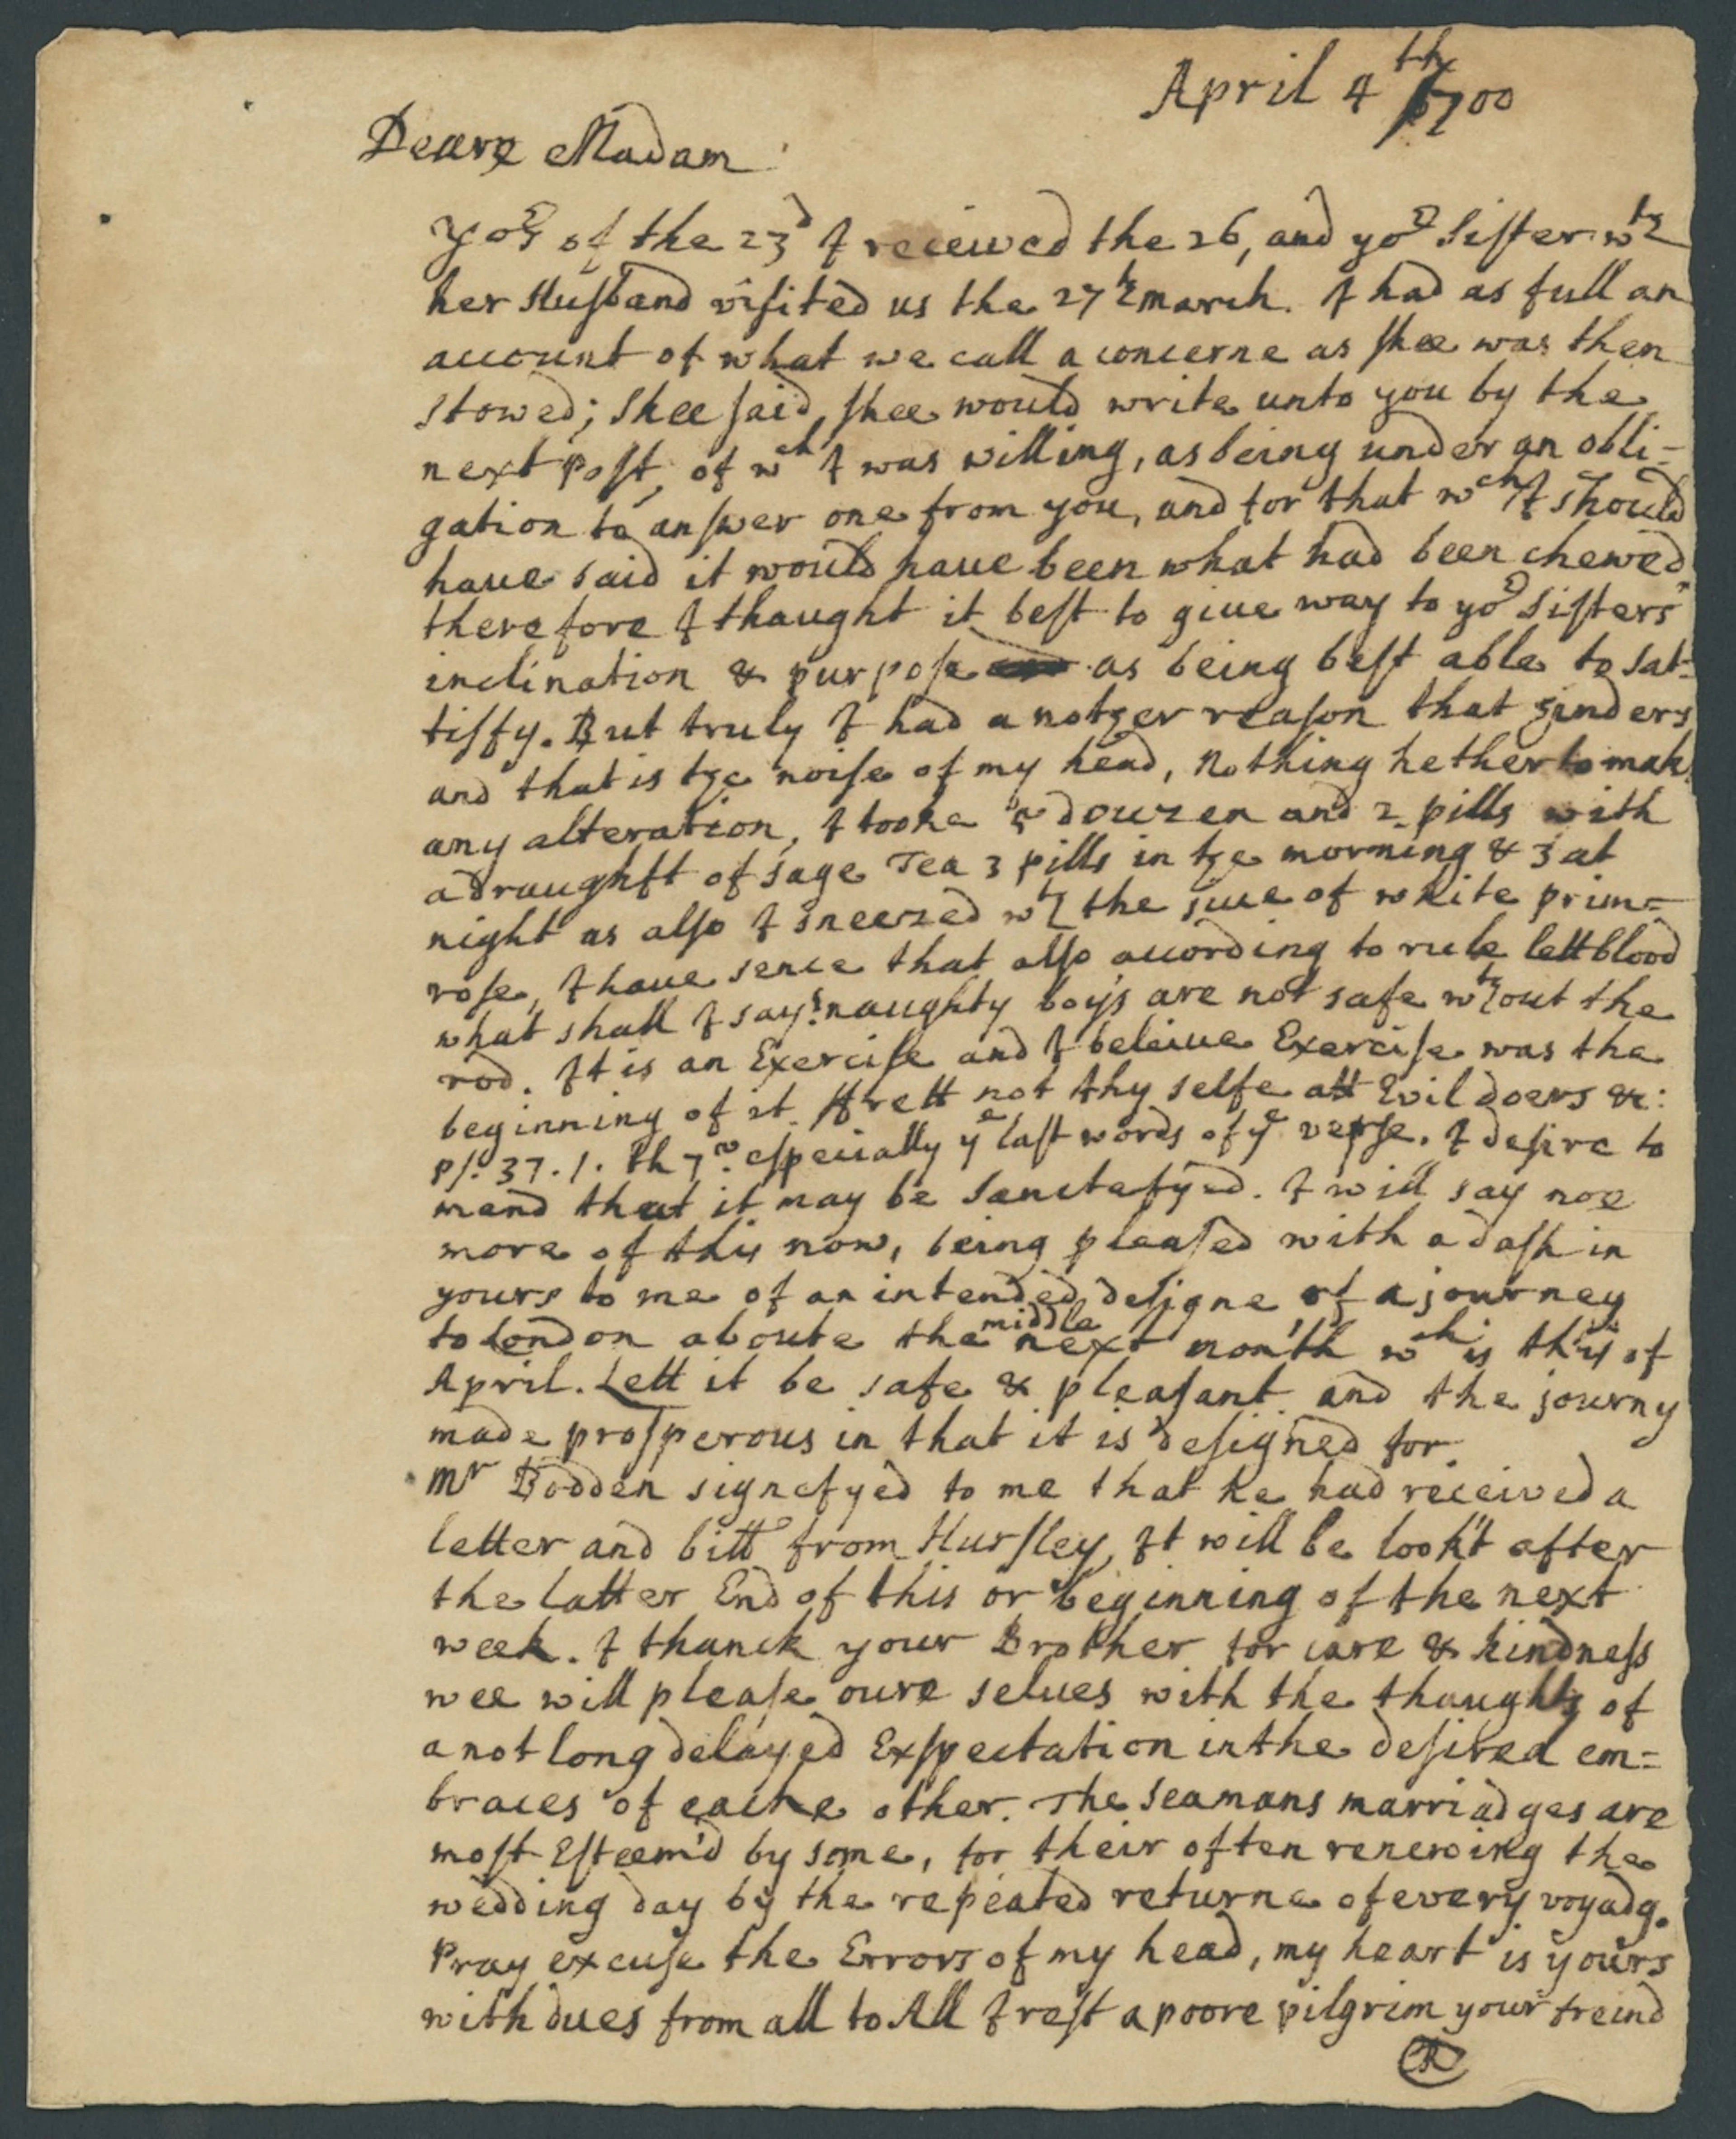 April 4th 1700
Deare Madam
Yors of the 23d I received the 26, and yor Sister wth
her Husband visited us the 27th march. I had as full an
account of what we call a concerne as shee was then
stowed; Shee said, shee would write unto you by the
next post, of wch I was willing, as being under an obli=
gation to answer one from you, and for that wch I should
haue said it would haue been what had been chewed
therefore I thought it best to giue way to yor Sisters
inclination & purpose as being best able to sat=
tisfy. But truly I had a nother reason that hinders
and that is the noise of my head, nothing hetherto mak
any alteration, I tooke douzen and 2 pills with
a draughtt of sage Tea 3 pills in the morning & 3 at
night as also I sneezed wth the juce of white prim=
rose, I haue sence that also according to rule lett blood
what shall I say? naughty boys are not safe wthout the
rod. It is an Exercise and I beleiue Exercise was the
beginning of it. ffrett not thy selfe att Evil doers &c:
ps. 37. 1. th 7. especially ye last words of ye verse. I desire to
mend that it may be Sanctefyed. I will say noe
more of this now, being pleased with a dash in
yours to me of an intended designe of a journey
to London aboute the middle next month wch is this of
April. Lett it be safe & pleasant and the journy
made prosperous in that it is designed for.
Mr Bodden signefyed to me that he had received a
letter and bill from Hursley, It will be look't after
the latter End of this or beginning of the next
week. I thanck your Brother for care & kindness
wee will please oure selues with the thoughts of
a not long delayed Expectation in the desired em=
braces of eache other. The Seamans marriadges are
most Esteem'd by some, for their often renewing the
wedding day by the repeated returne of every voyadg.
Pray excuse the Errors of my head, my heart is yours
with dues from all to All I rest a poore pilgrim your freind
R